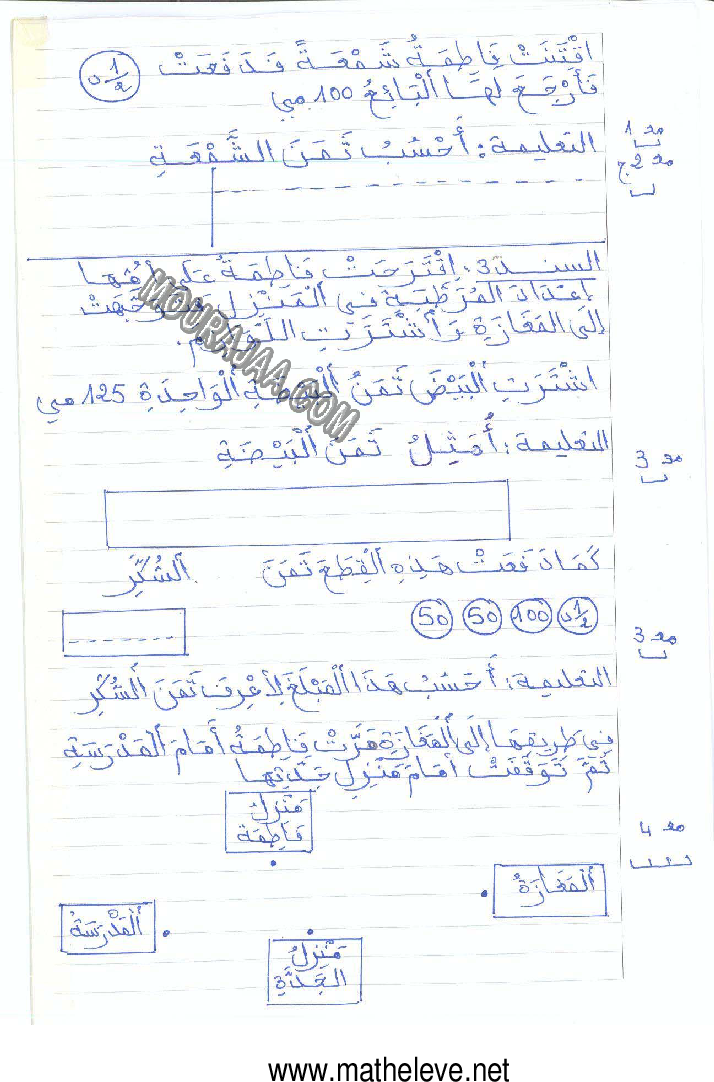 اقْتَنَتْ فَاطِمَةُ شَمْعَةً فَدَفَعَتْ
½ د
فَأَرْجَعَ لهَا اَلْبَائِعُ 100 مي
مع 1
التعليمة: أَحْسُبُ ثَمَنَ الشَّمْعَةِ
مع 2 ج
السند 3: اِقْتَرَحَتْ فَاطِمَةُ عَلَى أُمِّهَا
إِعْدَادَ المُرَطِّبَةِ فِي اَلْمَنْزِلِ
إِلَى المَغَازَةِ وَاَشْتَرَتِ
اشْتَرَتِ اَلْبَيْضَ ثَمَنُ اَلْبَيْضَةِ اَلْوَاحِدَةِ 125 مي
التعليمة: أُمَثِّلُ ثَمَنَ اَلْبَيْضَةِ
مع 3
كَمَا دَفَعَتْ هَذِهِ اَلْقِطَعَ ثَمَنَ اَلسُّكَّرِ
½ د 100 50 50
مع 3
التعليمة: أَحْسُبُ هَذَا اَلْمَبْلَغَ لِأَعْرِفَ ثَمَنَ اَلسُّكَّرِ
فِي طَرِيقِهَا إِلَى اَلْمَغَازَةِ مَرَّتْ فَاطِمَةُ أَمَامَ اَلْمَدْرَسَةِ
ثُمَّ تَوَقَّفَتْ أَمَامَ مَنْزِلِ جَدَّتِهَا
مع 4
مَنْزِلُ
فَاطِمَة
اَلْمَغَازَةُ
اَلْمَدْرَسَةُ
مَنْزِلُ
الجَدَّةِ
MOURAJAA.COM
www.matheleve.net